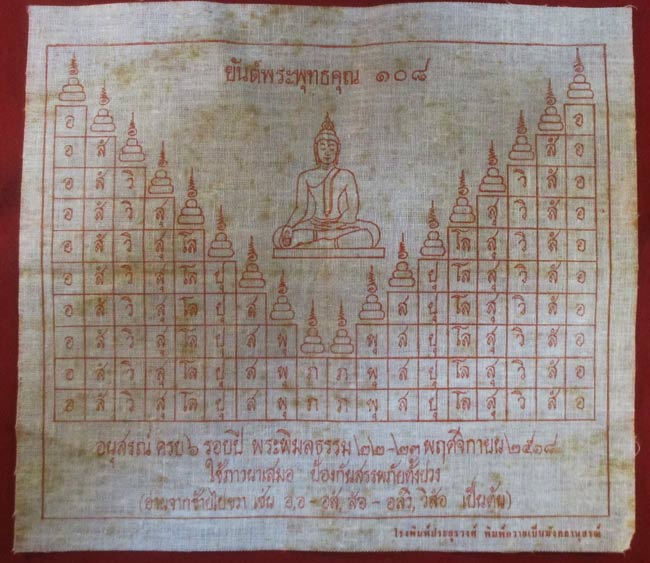 ยันต์พระพุทธคุณ ๑๐๘
อ อ
อ สั สั อ
อ สั วิ วิ สั อ
อ สั วิ สุ สุ วิ สั อ
อ สั วิ สุ โล โล สุ วิ สั อ
อ สั วิ สุ โล ปุ ปุ โล สุ วิ สั อ
อ สั วิ สุ โล ปุ ส ส ปุ โล สุ วิ สั อ
อ สั วิ สุ โล ปุ ส พุ พุ ส ปุ โล สุ วิ สั อ
อ สั วิ สุ โล ปุ ส พุ ภ ภ พุ ส ปุ โล สุ วิ สั อ
อ สั วิ สุ โล ปุ ส พุ ภ ภ พุ ส ปุ โล สุ วิ สั อ
อนุสรณ์ ครบ ๖ รอบปี พระพิมลธรรม ๒๒-๒๓ พฤศจิกายน ๒๕๑๘
ใช้ภาวนาเสมอ ป้องกันสรรพภัยทั้งปวง
(อ่านจากซ้ายไปขวา เช่น อ,อ - อสั, สัอ - อสวิ, วิสอ เป็นต้น)
โรงพิมพ์ประยูรวงศ์ พิมพ์ถวายเป็นมังคลานุสรณ์